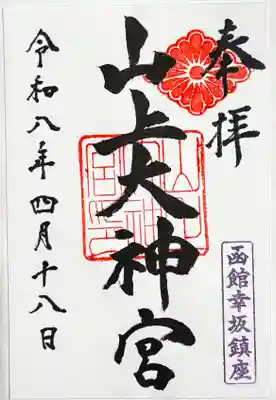 奉拝
山上大神宮
令和八年四月十八日
函館幸坂鎮座